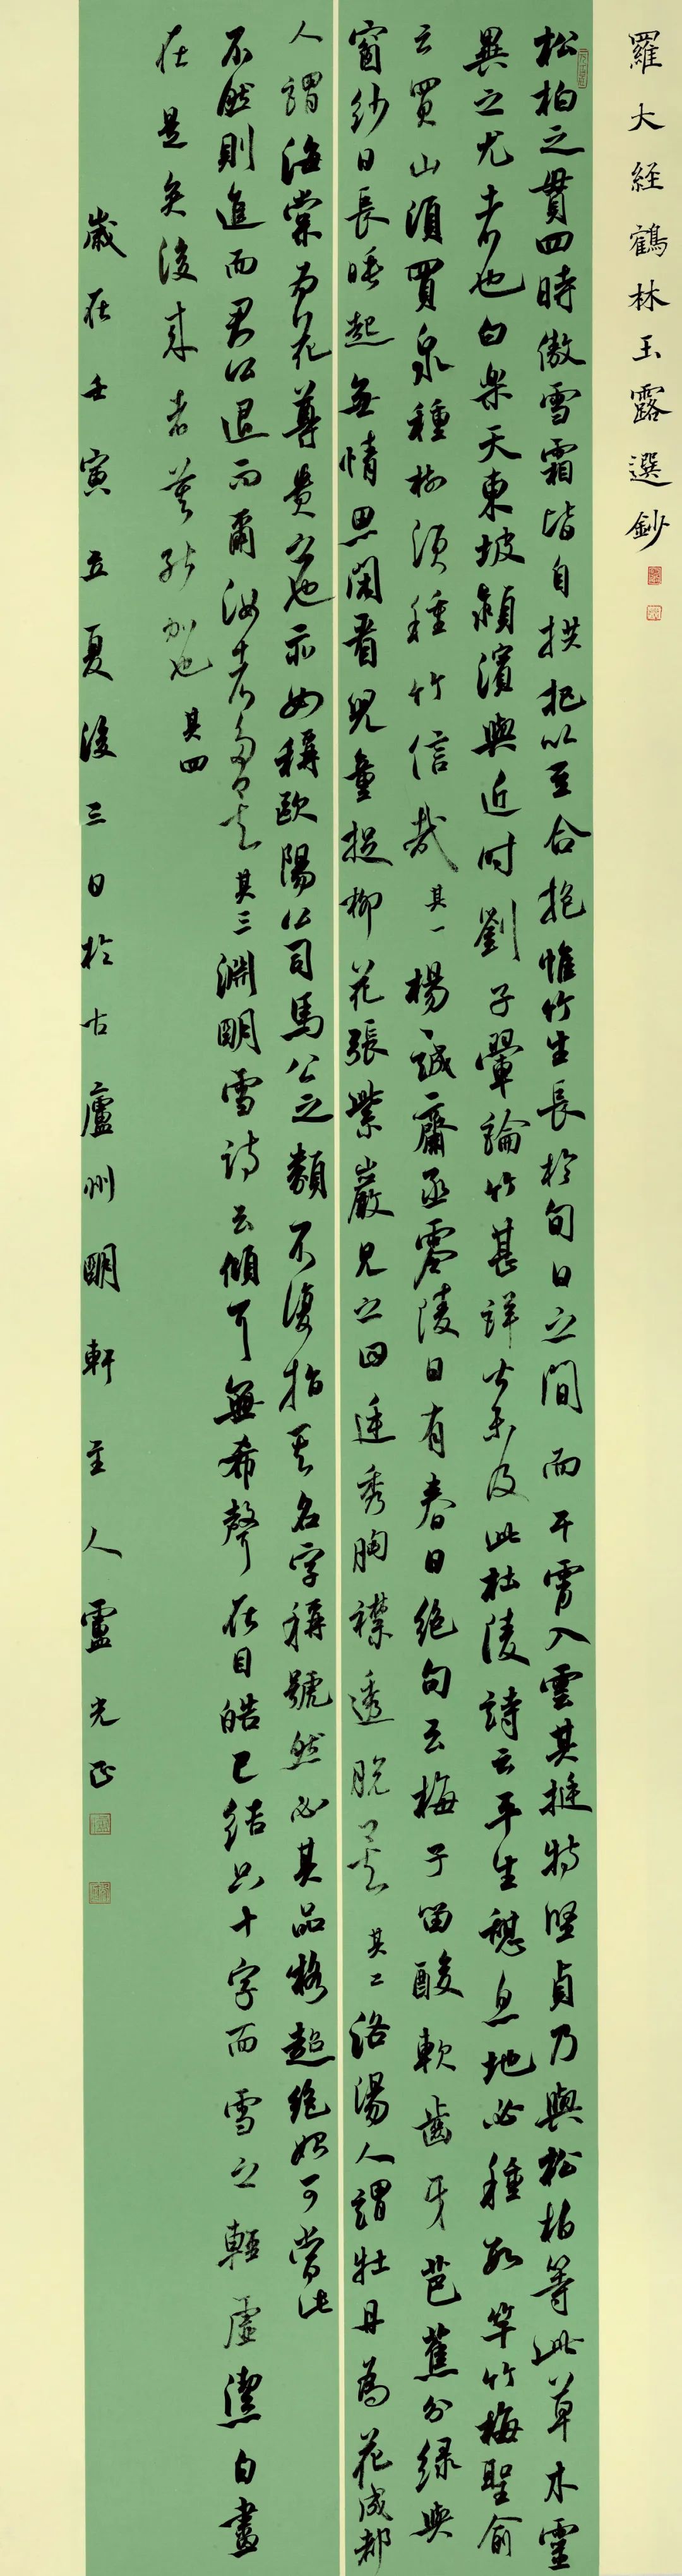 羅大経鶴林玉露選鈔
松柏之貫四時傲雪霜皆自拱把以至合抱惟竹生長於旬日之間而干霄入雲其挺特堅貞乃與松柏等此草木靈
異之尤者也白樂天東坡潁濱與近時劉子翬論竹甚詳皆未及此杜陵詩云平生憩息地必種數竿竹梅聖俞
云買山須買泉種樹須種竹信哉其一楊誠齋丞零陵日有春日絶句云梅子留酸軟齒牙芭蕉分緑與
窗紗日長睡起無情思閑看兒童捉柳花張紫巖見之曰廷秀胸襟透脱矣其二洛陽人謂牡丹為花成都
人謂海棠為花尊貴之也亦如稱歐陽公司馬公之類不復指其名字稱號然必其品格超絶始可當此
不然則進而君公退而爾汝者多矣其三淵明雪詩云傾耳無希聲在目皓已結只十字而雪之輕虚潔白盡
在是矣後来者莫能加也其四
歲在壬寅立夏後三日於古廬州明軒主人盧光正